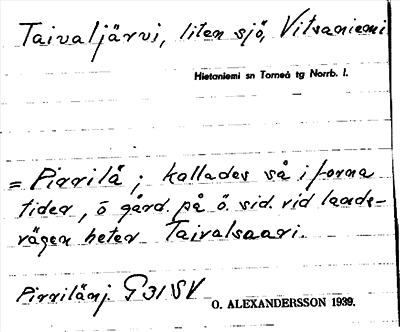 Taivaljärvi, liten sjö, Vitsaniemi
Hietaniemi sn Torneå tg Norrb. l.
= Pirrilä; kallades så i forna
tider, ö gård. på ö. sid. vid lands-
vägen heter Taivalsaari.
Pirrilänj. G31SV
O. ALEXANDERSSON 1939.